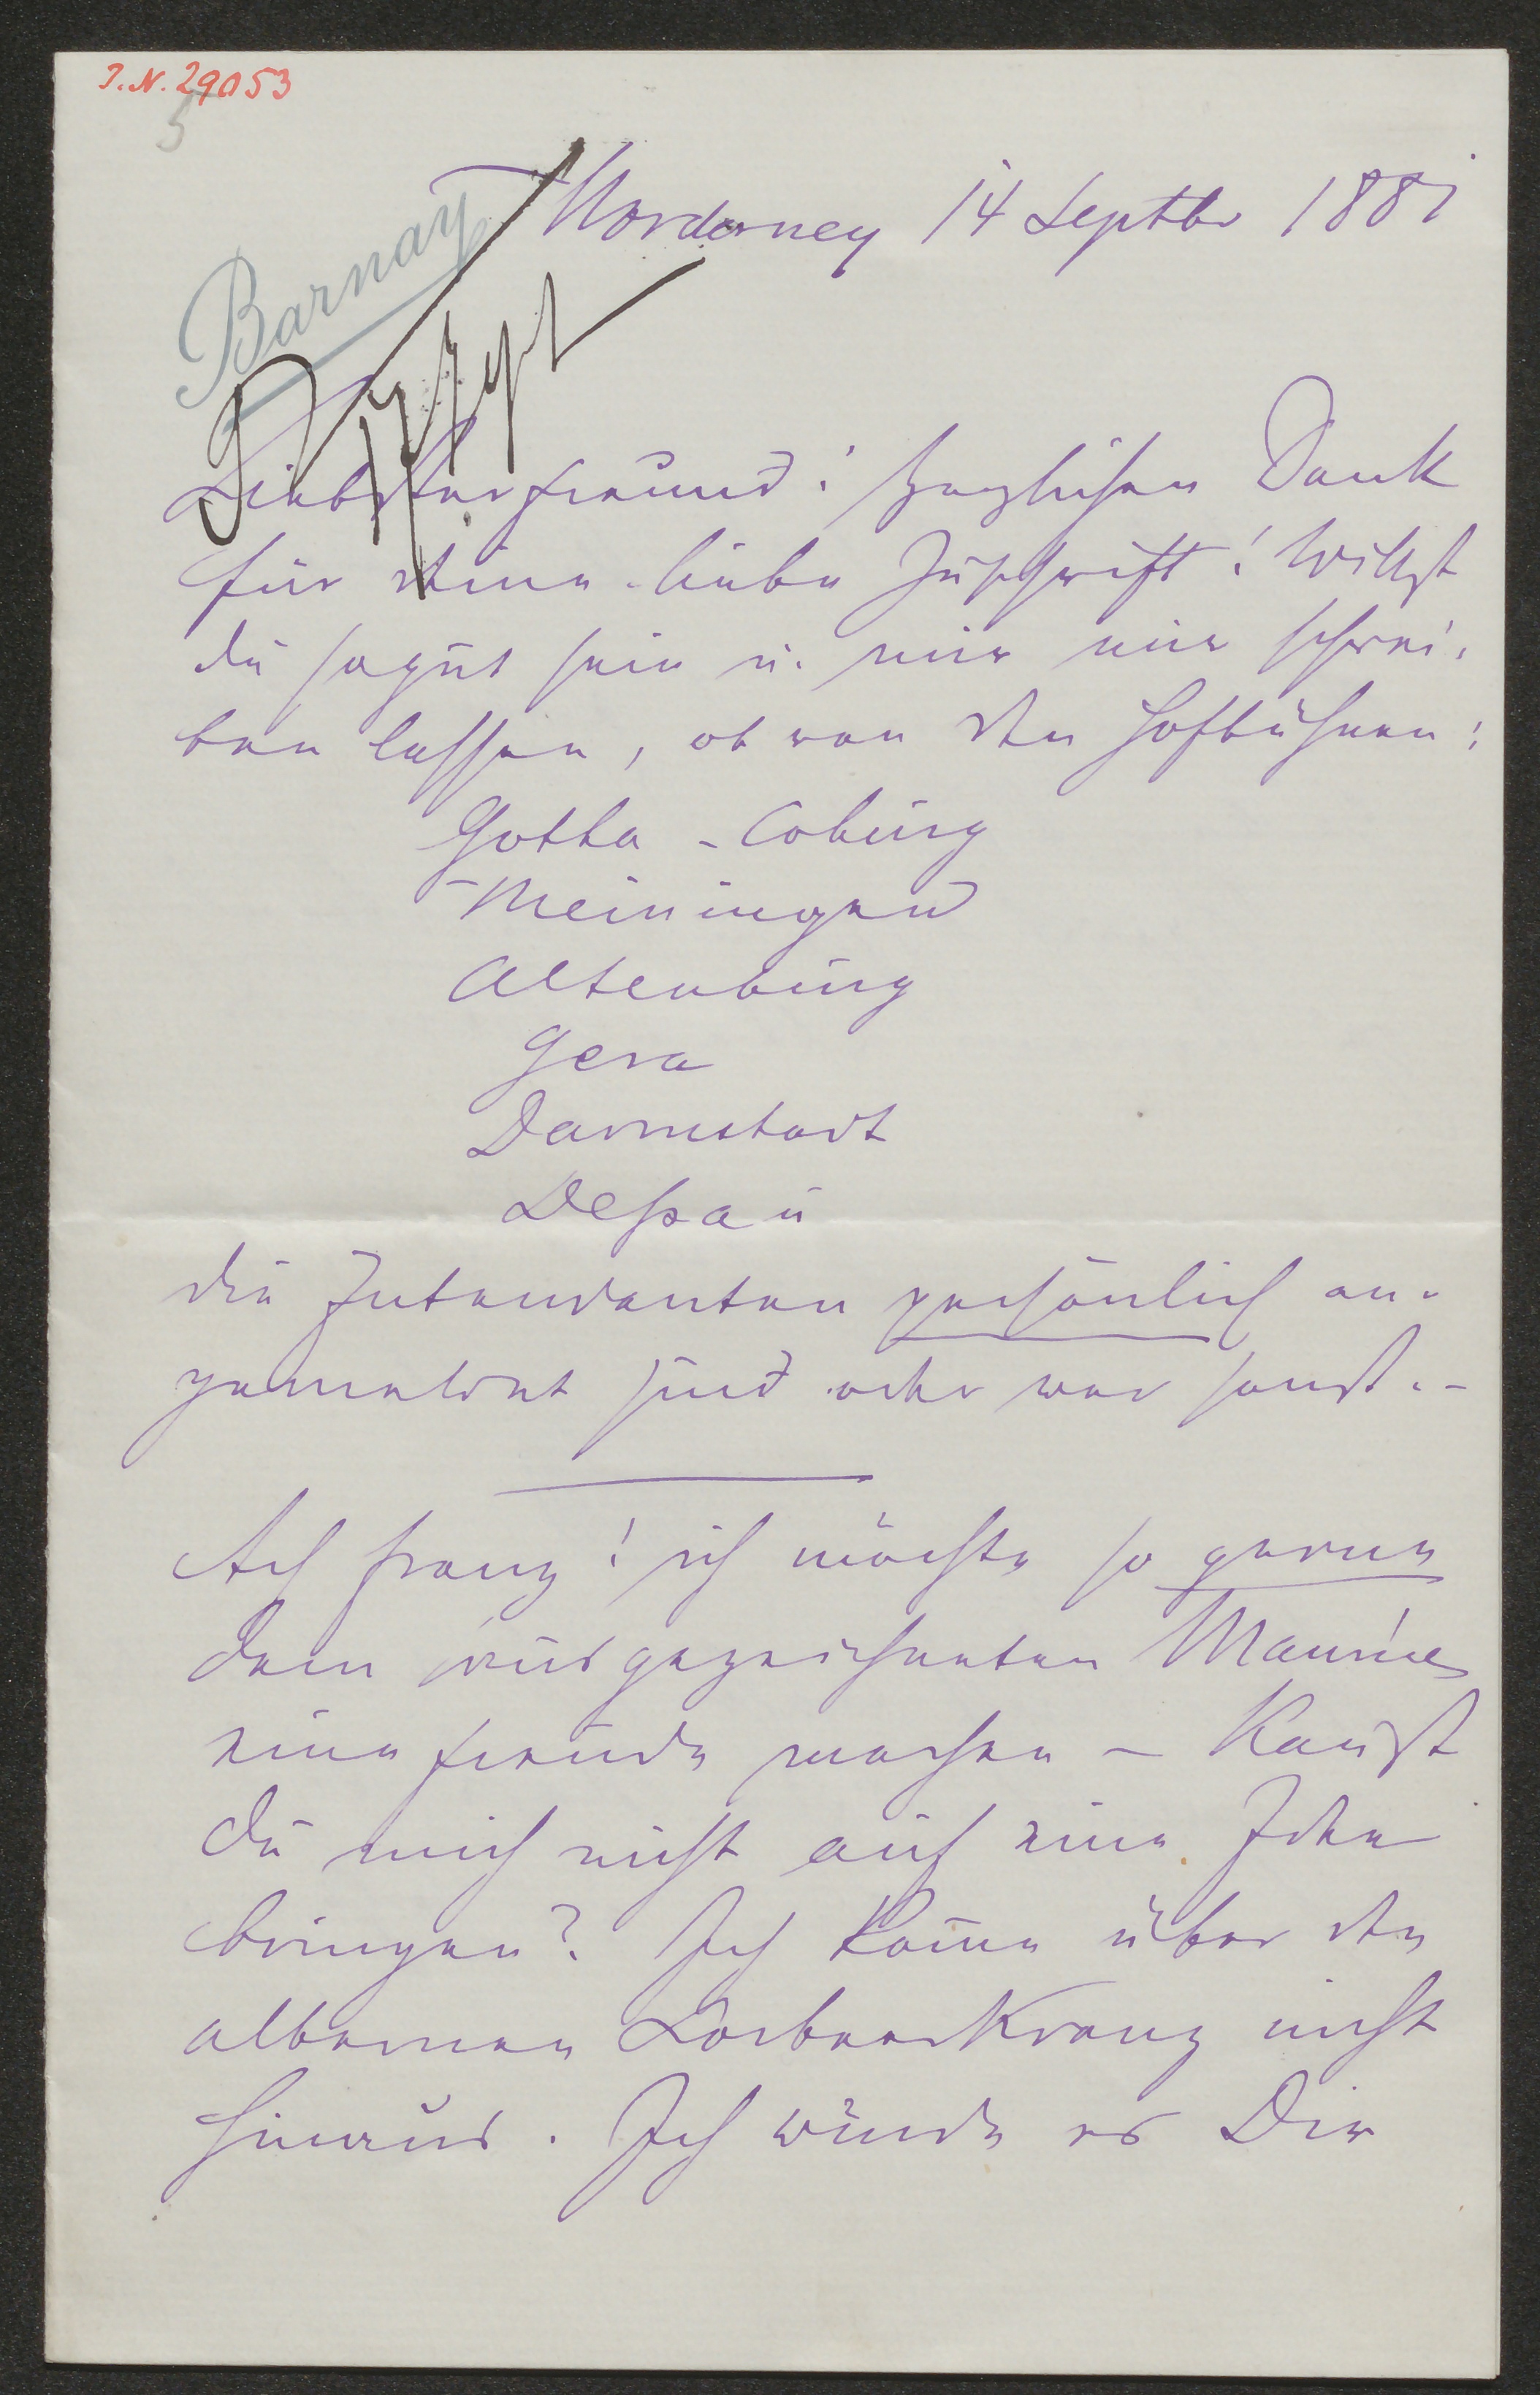 I.N. 29053
5
Barnay
Norderney 14 Septbr 1881
Liebster Freund! Herzlichen Dank
für deine liebe Zuschrift! Willst
du so gut sein u. mir nur schrei-
ben lassen, ob von den Hofbühnen:
Gotha - Coburg
Meiningen
Altenburg
Gera
Darmstadt
Dessau
die Intendanten persönlich an-
gemeldet sind oder wer sonst. -
Ach Franz! ich möchte so gerne
dem ausgezeichneten Maurice
eine Freude machen - Kannst
du mich nicht auf eine Idee
bringen? Ich kom̄e über den
albernen Lorbeerkranz nicht
hinaus. Ich würde es Dir